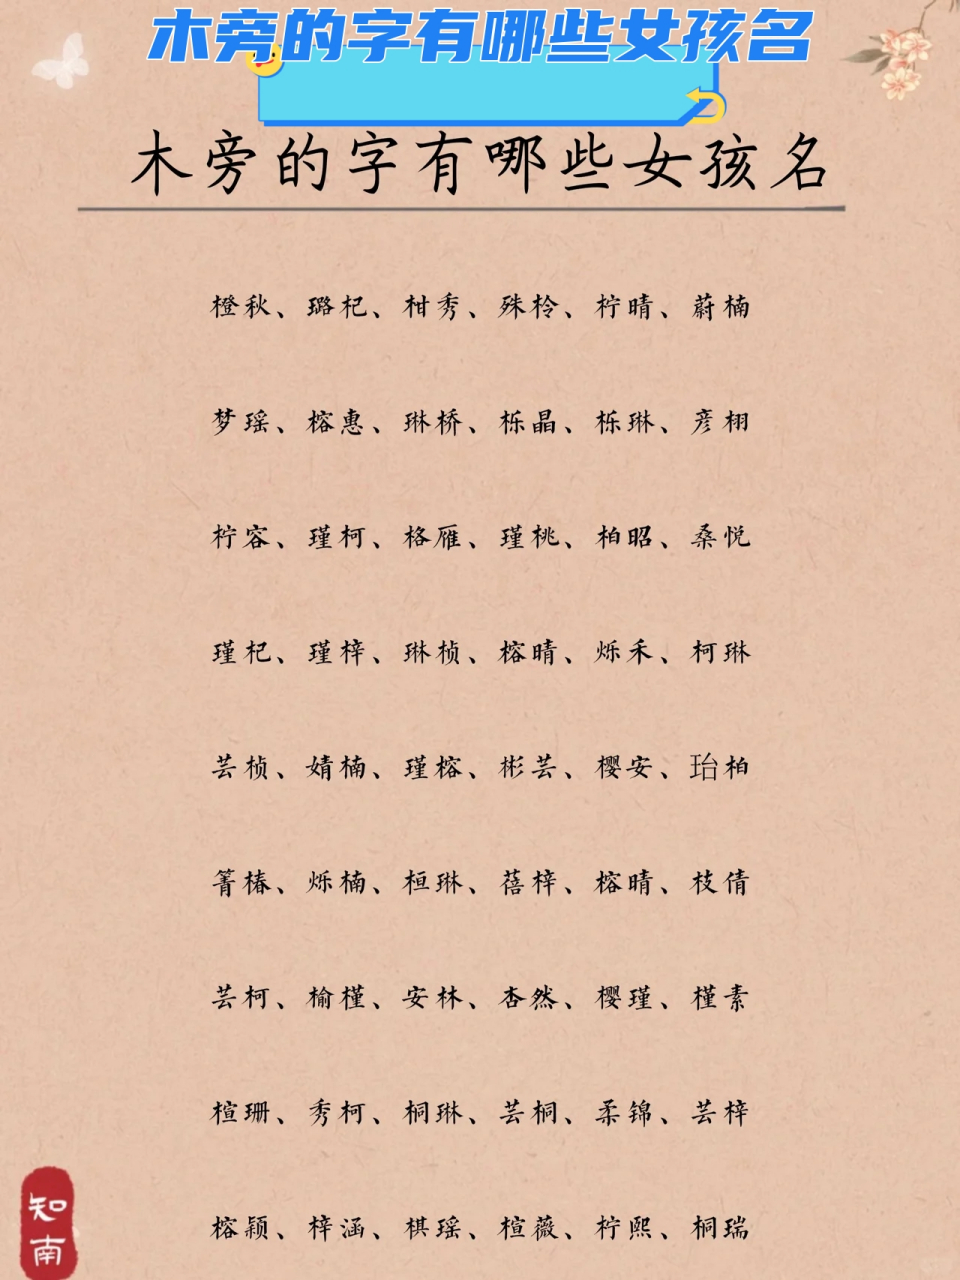 木旁的字有哪些女孩名
木旁的字有哪些女孩名
橙秋、璐杞、柑秀、殊柃、柠晴、蔚楠
梦瑶、榕惠、琳桥、栎晶、栎琳、彦栩
柠容、瑾柯、格雁、瑾桃、柏昭、桑悦
瑾杞、瑾梓、琳桢、榕晴、烁禾、柯琳
芸桢、婧楠、瑾榕、彬芸、樱安、珆柏
箐椿、烁楠、桓琳、蓓梓、榕晴、枝倩
芸柯、榆槿、安林、杏然、樱瑾、槿素
楦珊、秀柯、桐琳、芸桐、柔锦、芸梓
榕颖、梓涵、棋瑶、楦薇、柠熙、桐瑞
知南